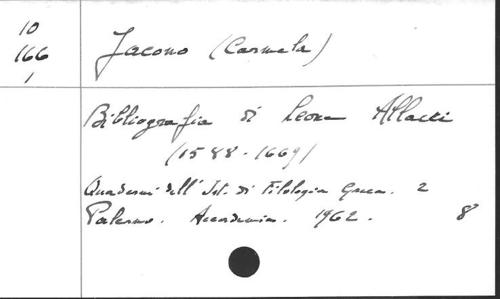 10
166
1
Jacono (Carmela)
Bibliografia di Leone Allacci
(1588-1669)
Quaderni dell' Ist. di Filologia Greca. 2
Palermo. Accademia. 1962. 8